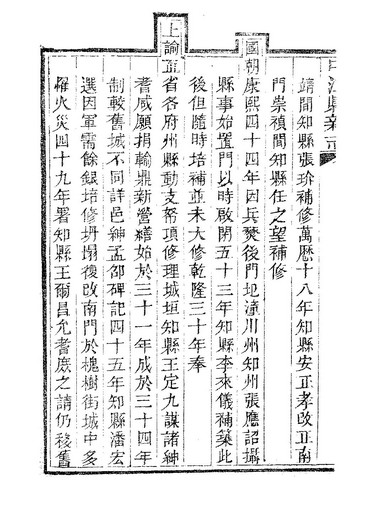 中江縣新志
靖間知縣張玠補修萬曆十八年知縣安正孝改正南
門崇禎間知縣任之望補修
國朝康熙四十四年因兵燹後門圮潼川州知州張應詔攝
縣事始置門以時啟閉五十三年知縣李來儀補築此
後但隨時培補並未大修乾隆三十年奉
上諭直省各府州縣動支帑項修理城垣知縣王定九謀諸紳
耆咸願捐輸鼎新營繕始於三十一年成於三十四年
制較舊城不同詳邑紳孟邵碑記四十五年知縣潘宏
選因軍需餘銀培修坍塌後改南門於槐樹街城中多
罹火災四十九年署知縣王爾昌允耆庶之請仍移舊